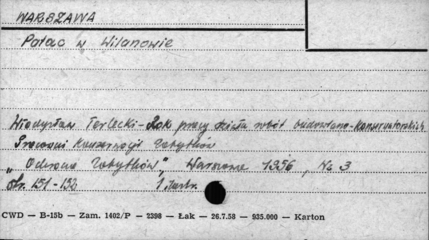 WARSZAWA
Pałac w Wilanowie
Władysław Terlecki - Rok pracy działu robót budowlano-konserwatorskich
Pracowni Konserwacji Zabytków
"Ochrona Zabytków", Warszawa 1956, No 3
str. 151-152 1 karta
CWD — B-15b — Zam. 1402/P — 2398 — Łak — 26.7.58 — 935.000 — Karton